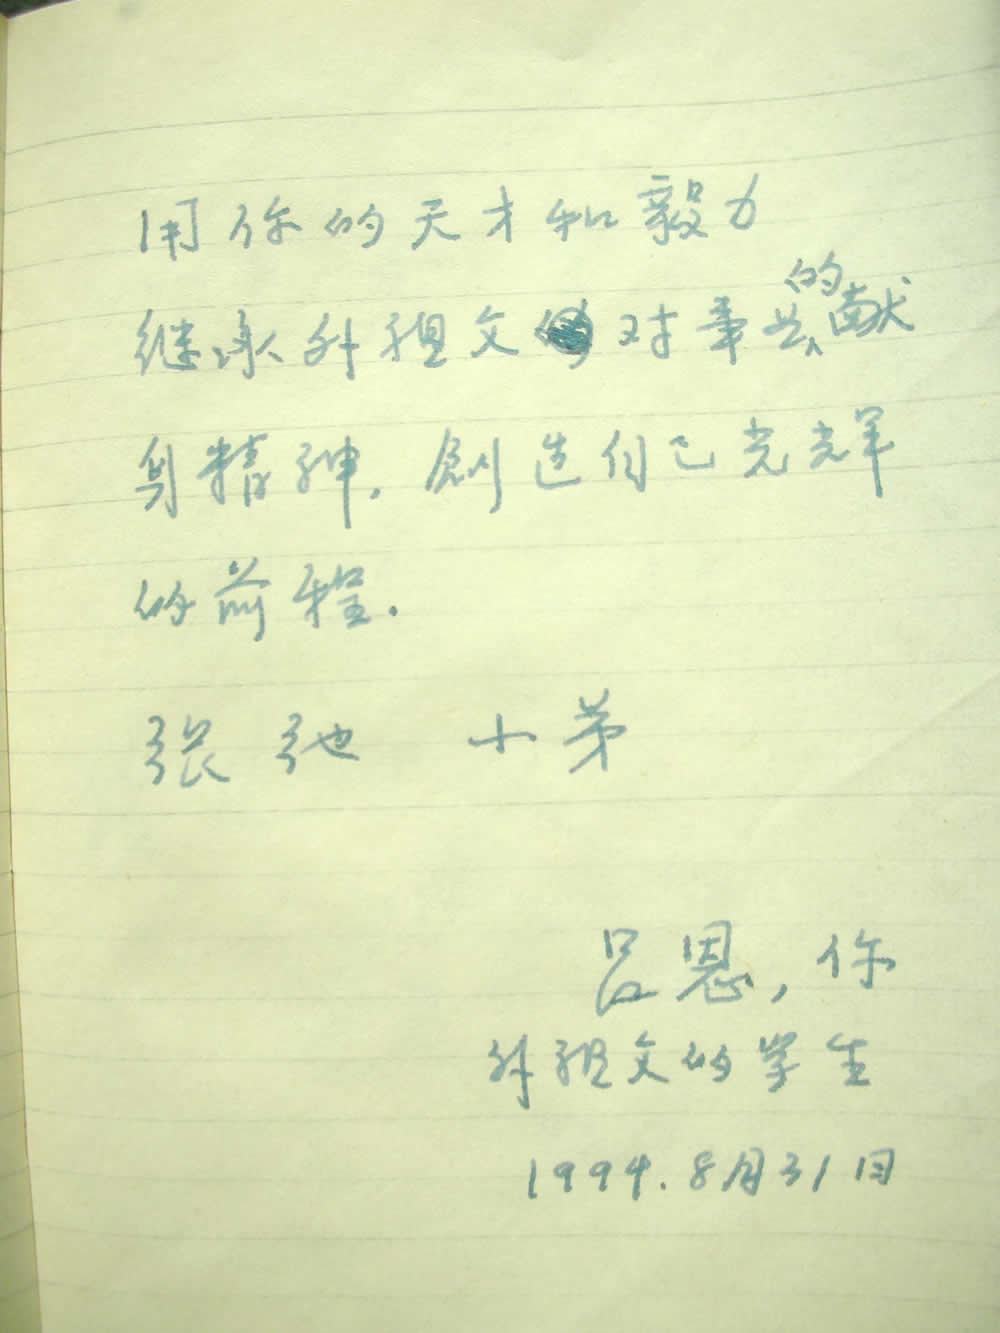 用你的天才和毅力
继承外祖父对事业的献
身精神，創造自己光辉
的前程．
张弛　小弟
吕恩，你
外祖父的学生
1994.8月31日